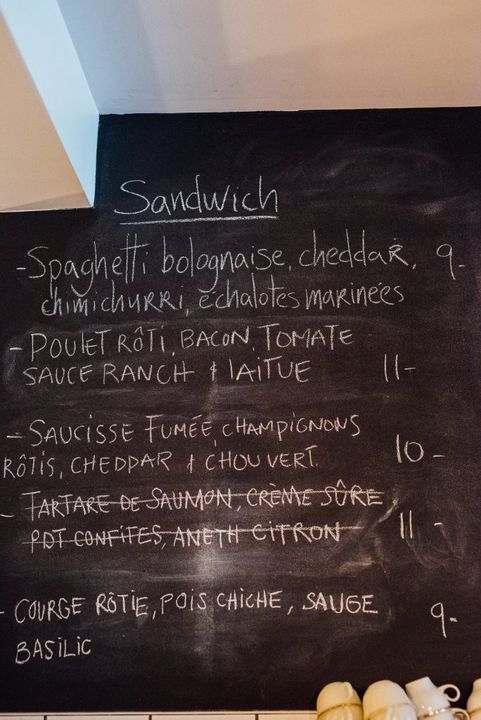 Sandwich
- Spaghetti bolognaise, cheddar, 9-
chimichurri, échalotes marinées
- POULET RÔTI, BACON, TOMATE
SAUCE RANCH & LAITUE 11-
- SAUCISSE FUMÉE, CHAMPIGNONS
RÔTIS, CHEDDAR & CHOU VERT 10-
- TARTARE DE SAUMON, CRÈME SÛRE
PDT CONFITES, ANETH CITRON 11-
- COURGE RÔTIE, POIS CHICHE, SAUGE 9-
BASILIC